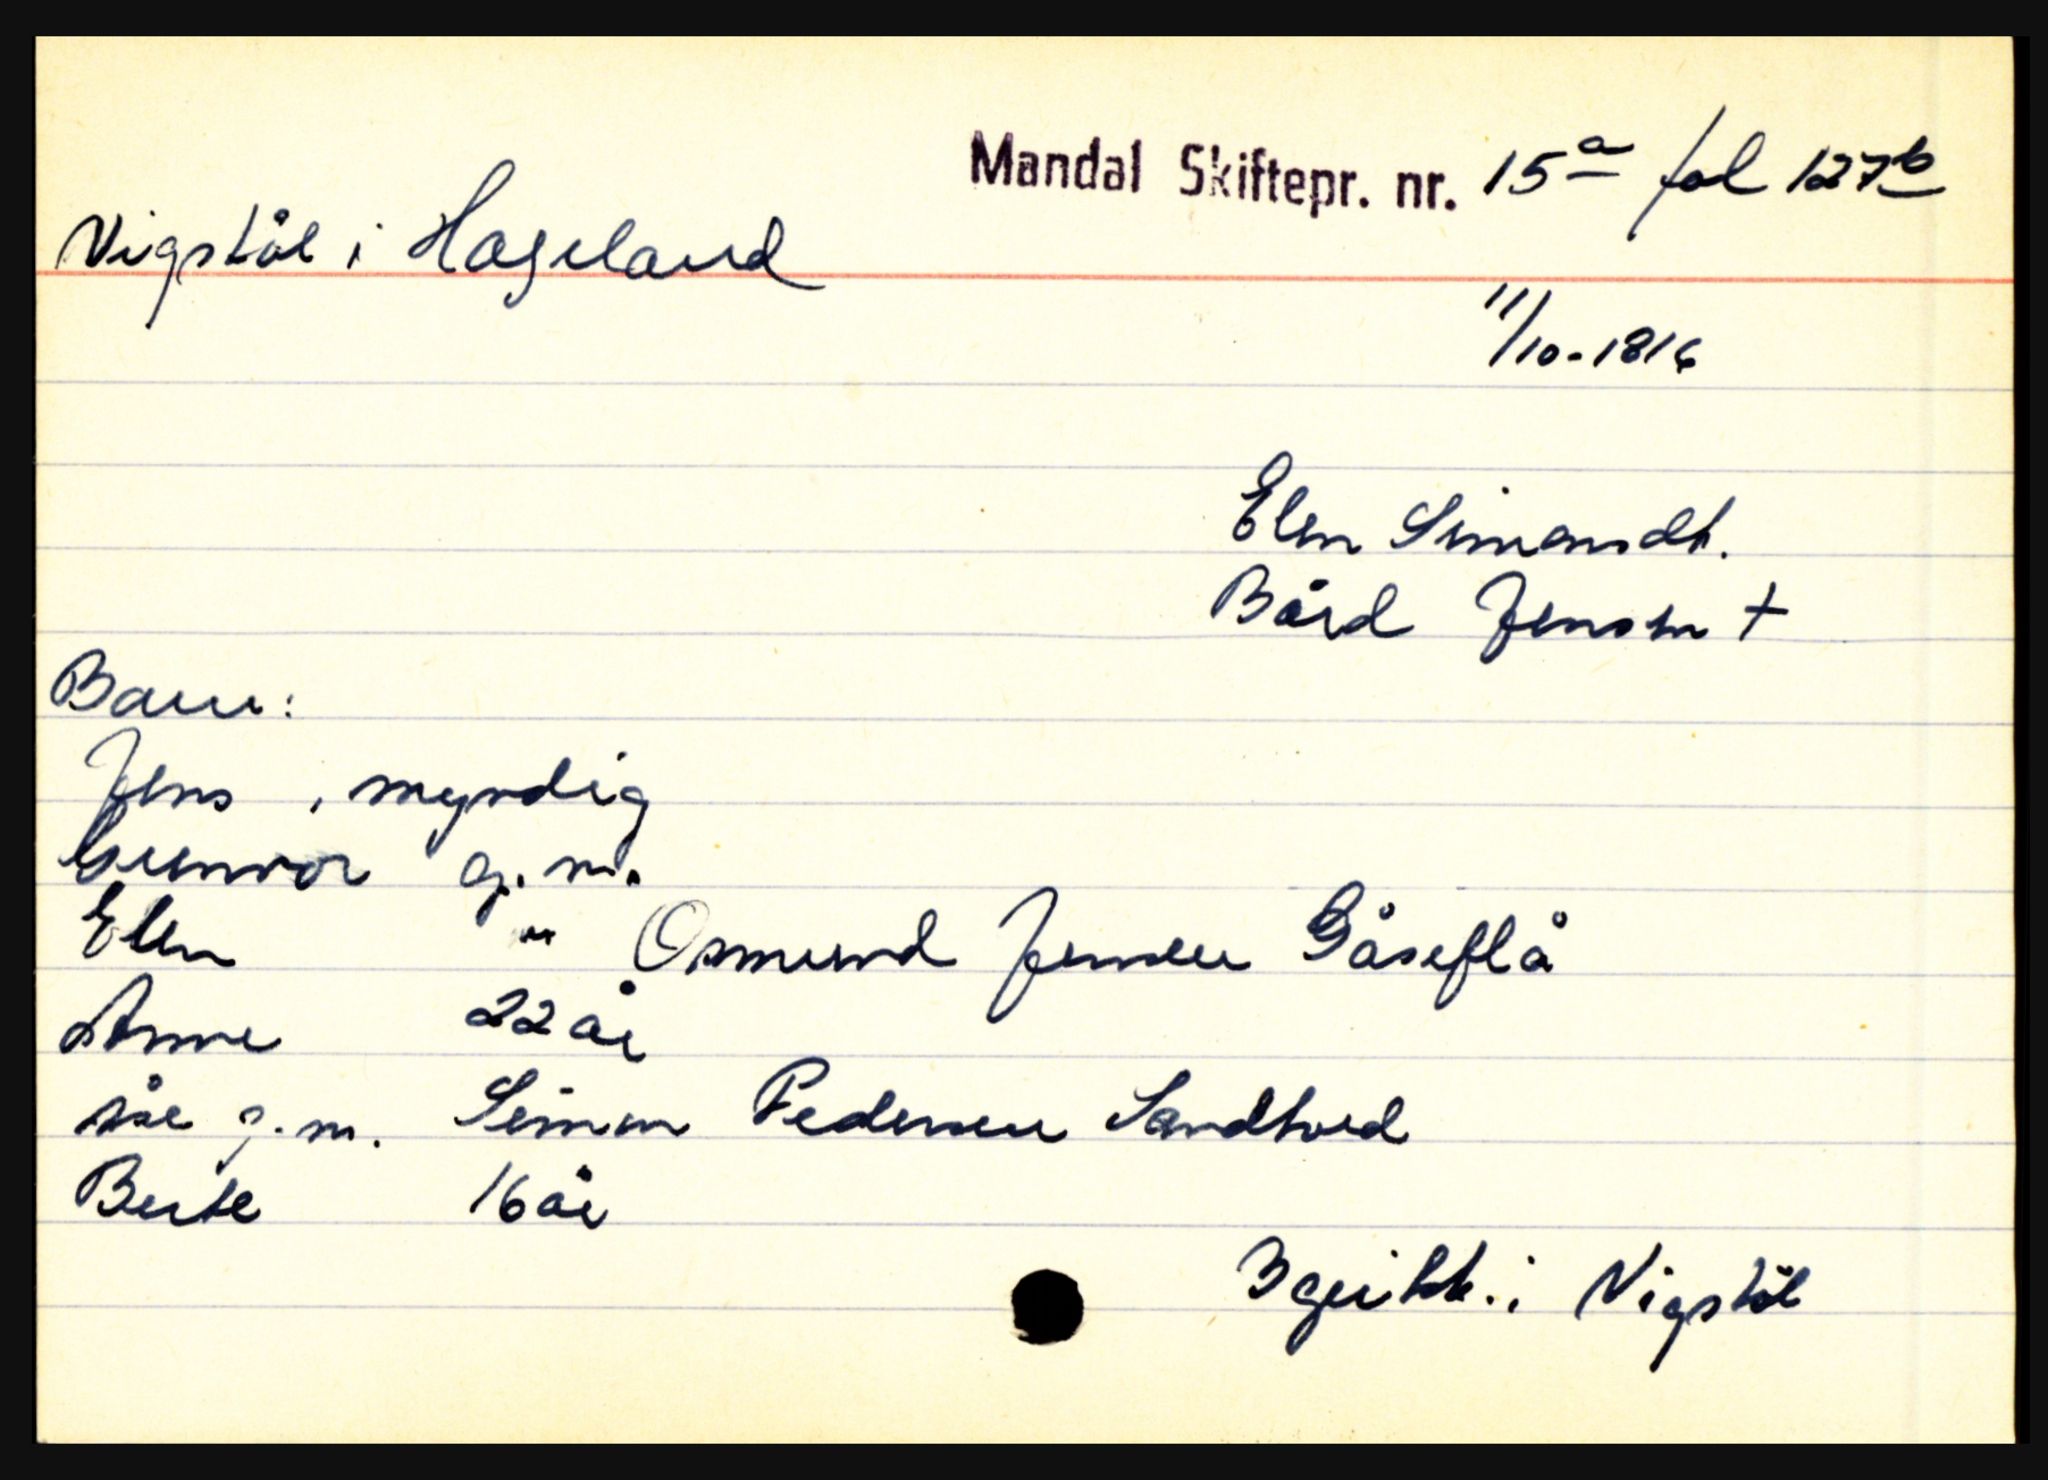 Mandal Skiftepr. nr. 15a fol 127b
Vigstøl i Hageland
11/10-1816
Elen Simonsdt.
Bård Jensen +
Barn:
Jens, myndig
Gunvor g.m.
Elen " Osmund Jensen Gåseflå
Anne 22 år
Åse g.m. Simon Pedersen Sandtved
Berte 16 år
i Vigstøl